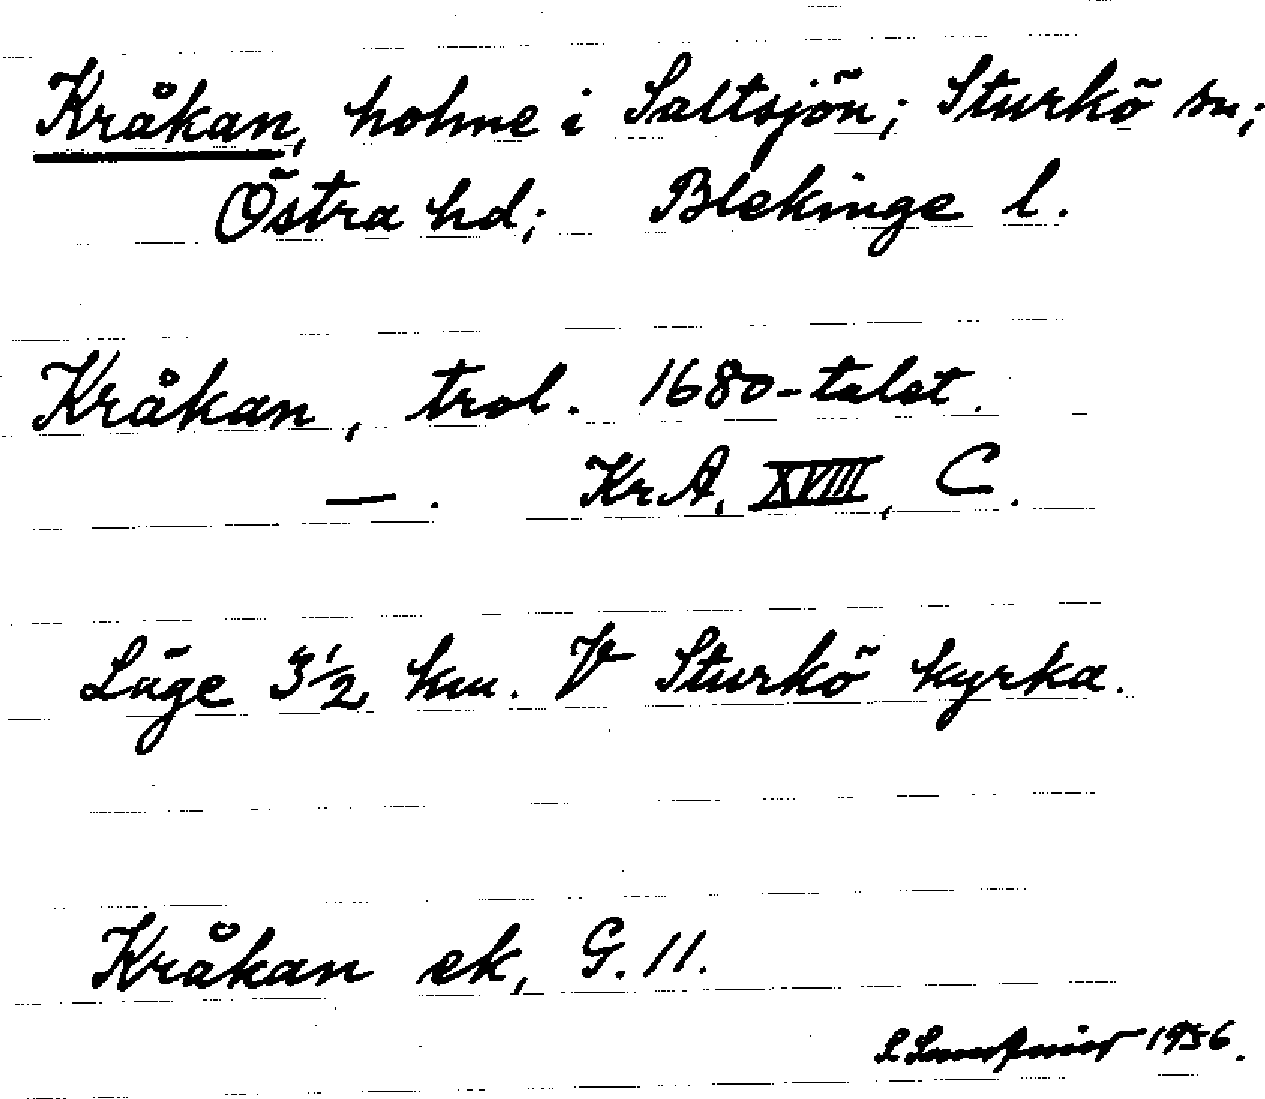 Kråkan, holme i Saltsjön; Sturkö sn;
Östra hd; Blekinge l.
Kråkan, trol. 1680-talet.
—. KrA, XVIII, C.
Läge 3½ km. V Sturkö kyrka.
Kråkan ek, G. 11.
1956.